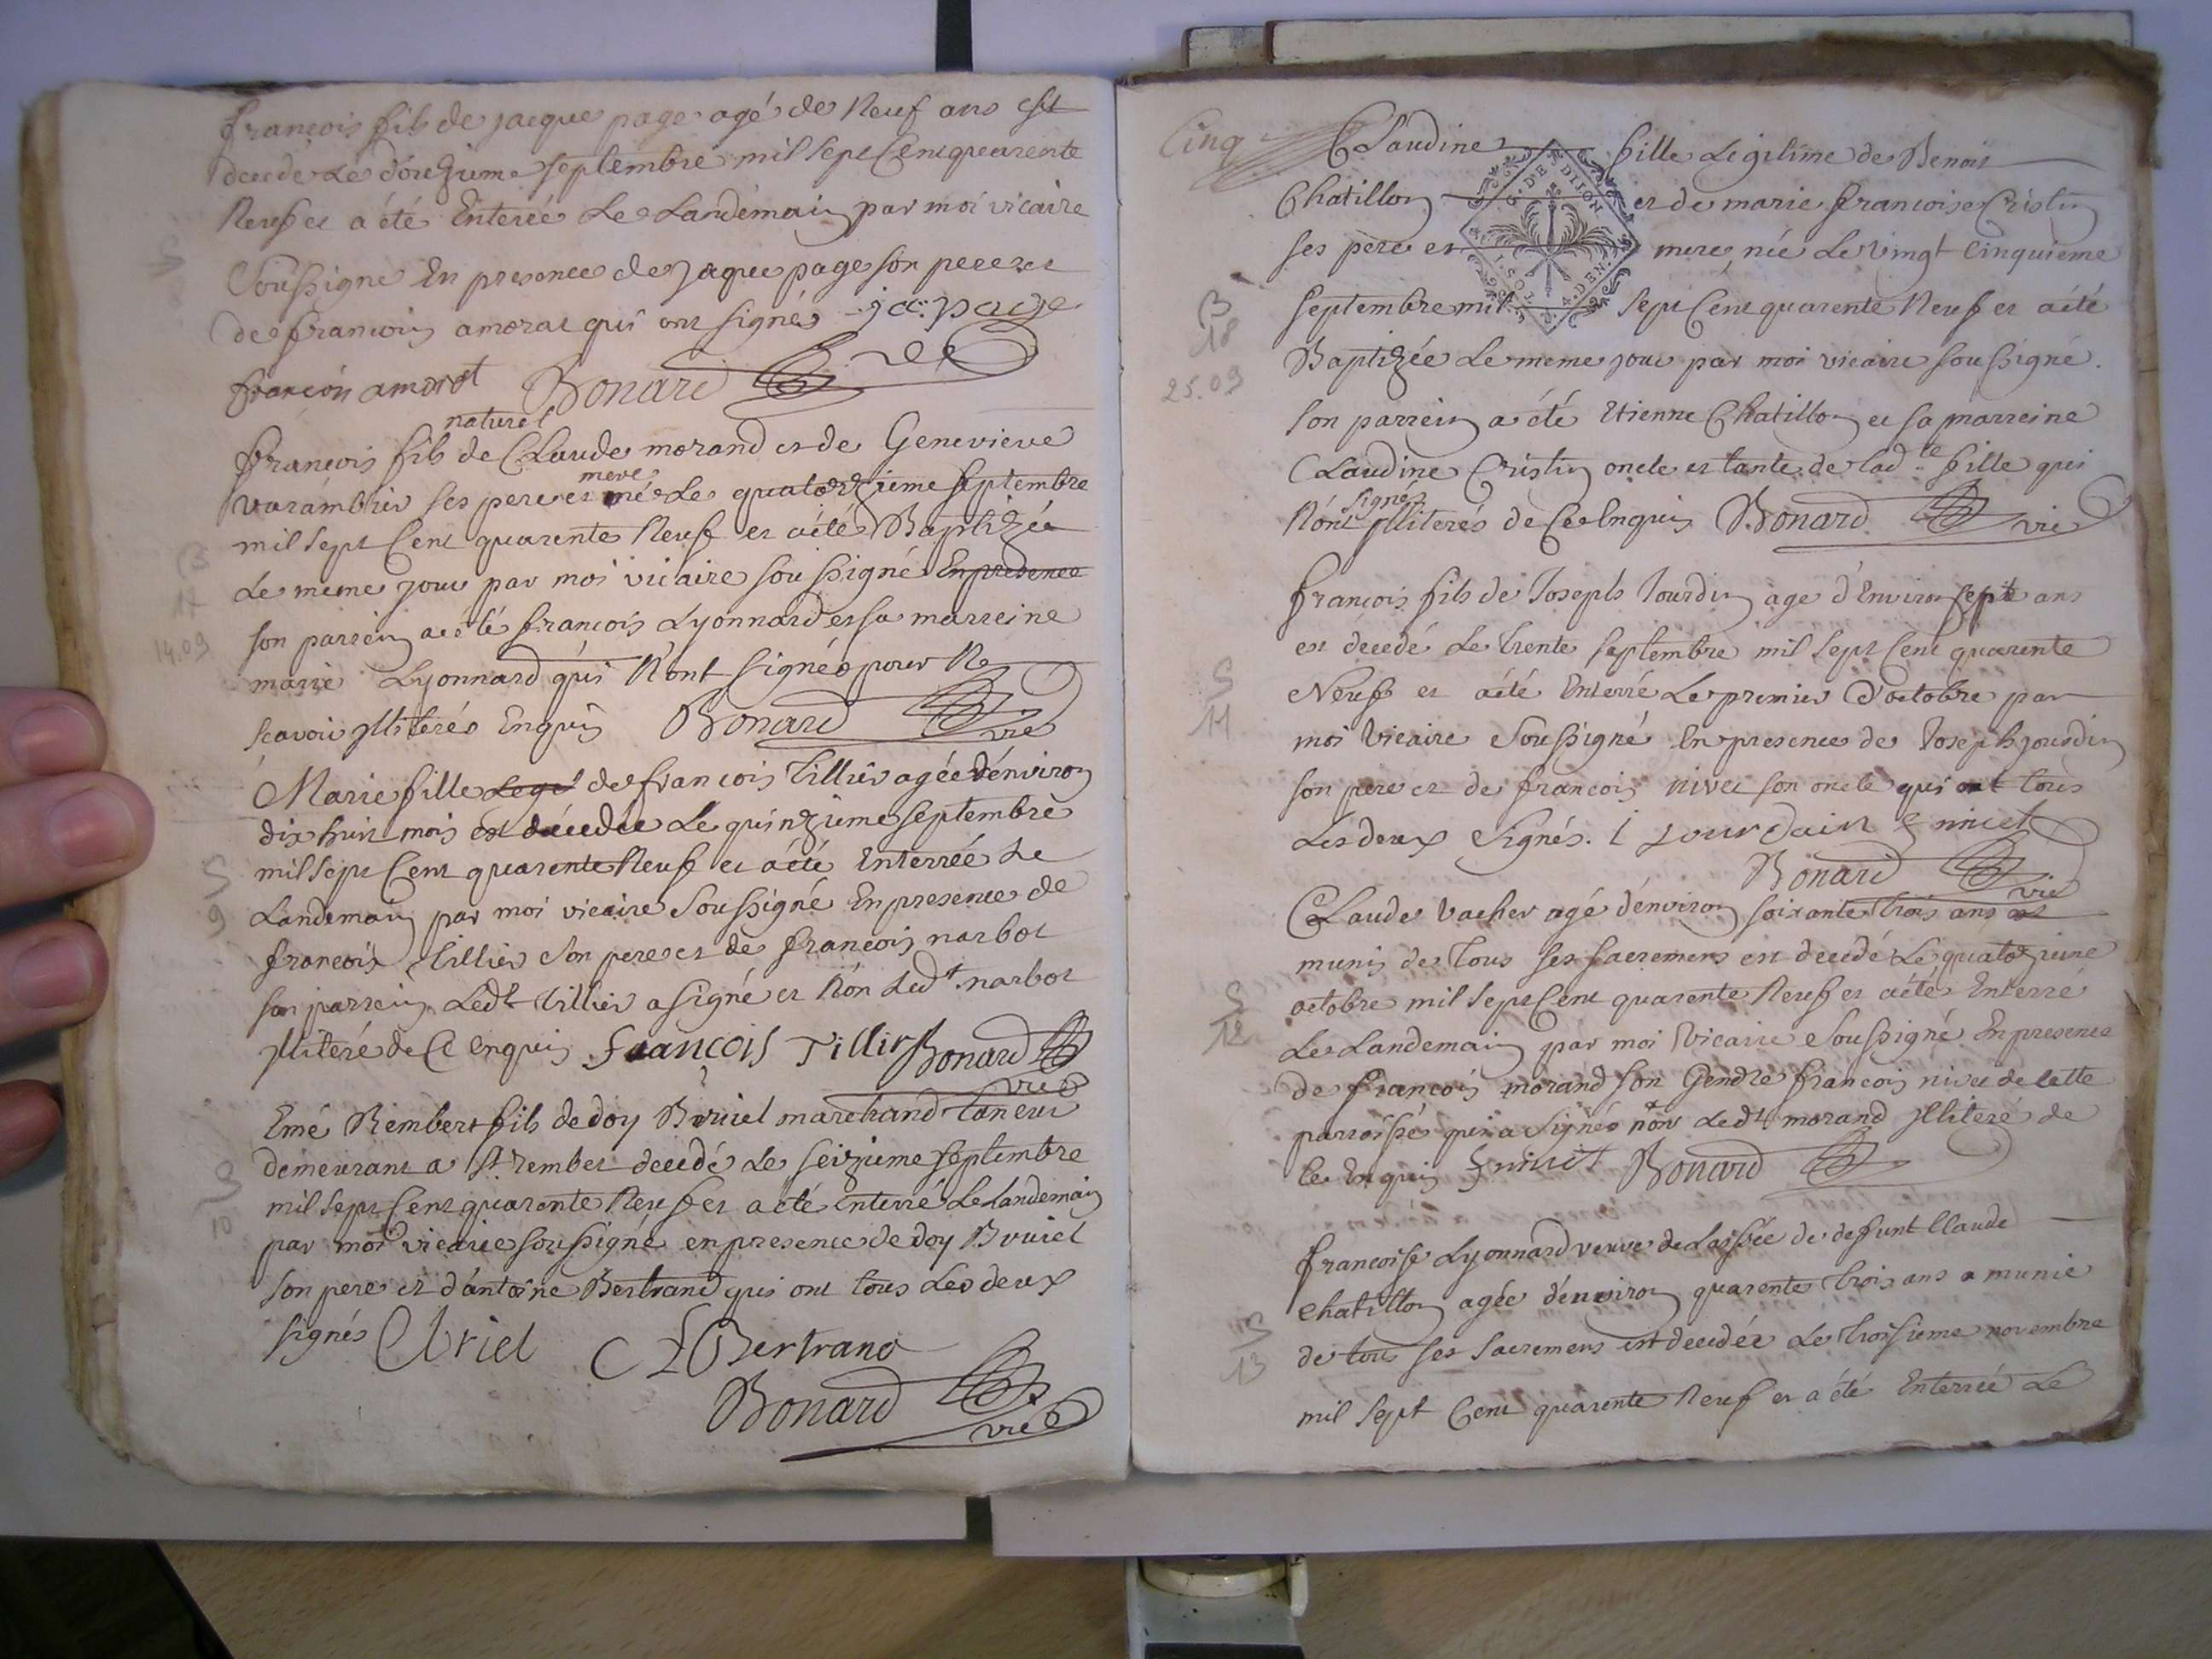 françois fils de jacque page agé de Neuf ans est
decedé Le douzieme septembre mil sept Cent quarente
Neuf et a été Enterée Le Landemain par moi vicaire
Soussigné En presence de jaque page son pere et
de francois amorat qui ont signés jac: page
françois amorat Bonard vic
naturel
françois fils de Claude morand et de Genevieve
mere
varambier ses pere et né Le quatorzieme septembre
mil sept Cent quarente Neuf et a été Baptizée
Le meme jour par moi vicaire soussigné En presence
son parrein a été francois Lyonnard et sa marreine
marie Lyonnard qui N'ont signés pour Ne
scavoir Illiterés Enquis Bonard vic
Marie fille Legit de francois Tillier agée d'environ
dix huit mois est décedée Le quinzieme septembre
mil sept Cent quarente Neuf et a été Enterrée Le
Landemain par moi vicaire Soussigné En presence de
francois Tillier son pere et de francois narbot
son parrein Ledt Tillier a signé et Nón Ledt narbot
Illiteré de Ce enquis François Tillier Bonard
vic
Emé Rembert fils de doy Buriel marchand Taneur
demeurant a St rembert decedé Le seizieme septembre
mil sept Cent quarente Neuf et a été enterré Le Landemain
par moi vicaire soussigné en presence de doy Buriel
son pere et d'antoine Bertrand qui ont tous Les deux
signés Bertrand
Bonard
vic
S
B
17
14.09
S
9
S
10
Cinq
Claudine fille Legitime de Benoit
Chatillon et de marie francoise Cristin
G. DE DIJON
ses pere et mere, née Le vingt Cinquieme
septembre mil sept Cent quarente Neuf et a été
Baptizée Le meme jour par moi vicaire soussigné.
son parrein a été Etienne Chatillon et sa marreine
Claudine Cristin oncle et tante de lad.te fille qui
signés
N'ont Illiterés de Ce Enquis Bonard vic
françois fils de Joseph Jourdin age d'Environ sept ans
est décedé Le trente septembre mil sept Cent quarente
Neuf et a été Enterré Le premier d'octobre par
moi Vicaire Soussigné En presence de Joseph jourdin
son pere et de francois nivet son oncle qui ont tous
Les deux Signés. I jourdain f nivet
Bonard vic
Claude Vacher agé d'environ soixante trois ans
munis de tous ses sacremens est decedé Le quatorzieme
octobre mil sept Cent quarente Neuf et a été Enterré
Le Landemain par moi Vicaire Soussigné En presence
de francois morand son Gendre francois nivet de cette
parroisse qui a signés non Ledt morand Illiteré de
Ce Enquis f nivet Bonard
francoise Lyonnard veuve delaissée de defunt Claude
chatillon agée d'environ quarente trois ans a munie
de tous ses sacremens est decedée Le troisieme novembre
mil sept Cent quarente Neuf et a été Enterrée Le
B
18
25.09
S
11
S
12
S
13